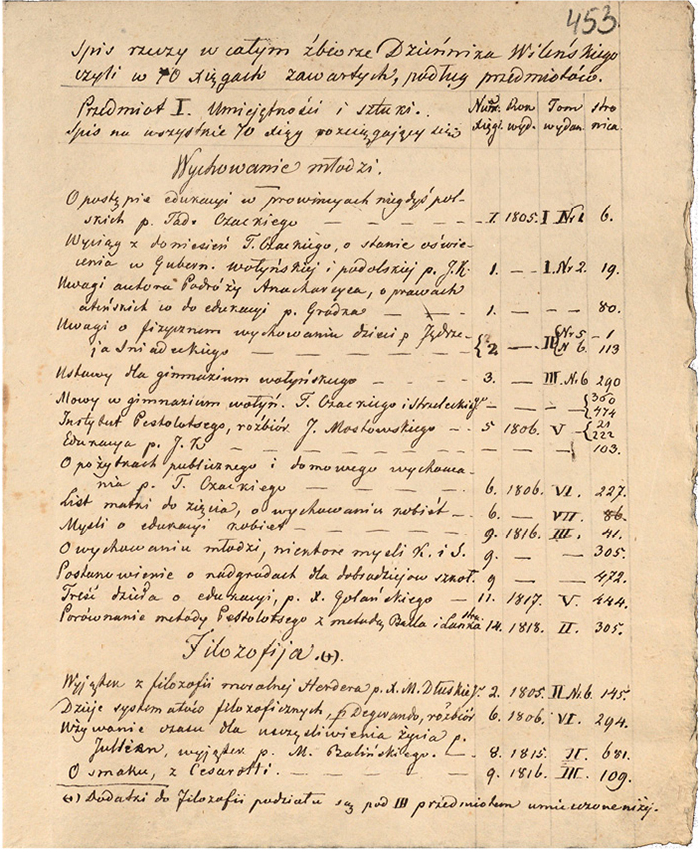 453
Spis rzeczy w całym zbiorze Dziennika Wileńskiego
czyli w 70 xięgach zawartych, podług przedmiotów.
Przedmiot I. Umiejętności i sztuki.. Num. xięgi. Rok wyd. Tom wydan. stronica.
Spis na wszystkie 70 xiąg rozciągający się
Wychowanie młodzi.
O postępie edukacyi w prowincyach niegdyś pol-
skich p. Tad. Czackiego — — — — 1. 1805. I Nr 1 6.
Wyciąg z doniesień T. Czackiego, o stanie oświe-
cenia w Gubern. wołyńskiej i podolskiej p. J.K. 1. — I. Nr 2. 19.
Uwagi autora Podróży Anacharsysa, o prawach
ateńskich co do edukacyi p. Grodka — — 1. — — 80.
Uwagi o fizycznem wychowaniu dzieci p Jędrze-
ja Śniadeckiego — — — — { 2. — II { Nr 5 — 1 N 6. 113
Ustawy dla gimnazium wołyńskiego - - - - 3. — III. N. 6 290
Mowy w gimnazium wołyń. T. Czackiego i Strzeleckiego — — — { 350 474
Instytut Pestolotsego, rozbiór J. Mostowskiego — - 5 1806. V — { 21 222
Edukacya p. J. K — — — — — — — — 103.
O pożytkach publicznego i domowego wychowa-
nia p. T. Czackiego — — — — 6. 1806. VI. 227.
List matki do zięcia, o wychowaniu kobiét — - 6. — VII. 86.
Mysli o edukacyi kobiet — — — — 9. 1816. III. 41.
O wychowaniu młodzi, niektore mysli K. i S. 9. — — 305.
Postanowienie o nadgrodach dla dobrodziejow szkoł. 9 — — 472.
Treść dzieła o edukacyi, p. X. Gołańskiego — 11. 1817. V. 444.
Porównanie metody Pestolotsego z metodą Bella i Lankastra 14. 1818. II. 305.
Filozofija (*).
Wyjątek z filozofii moralnej Herdera p. X. M. Dłuskiego 2. 1805. II N. 6. 145.
Dzije systematów filozoficznych, p Degerando, rozbiór 6. 1806. VI. 294.
Używanie czasu dla uszczęśliwienia życia p.
Jullien, wyjątek p. M. Balińskiego. — - 8. 1815. II. 681.
O smaku, z Cesarotti. — — — — 9. 1816. III. 109.
(*) Dodatki do Filozofii podziału są pod III przedmiotem umieszczone niżej.